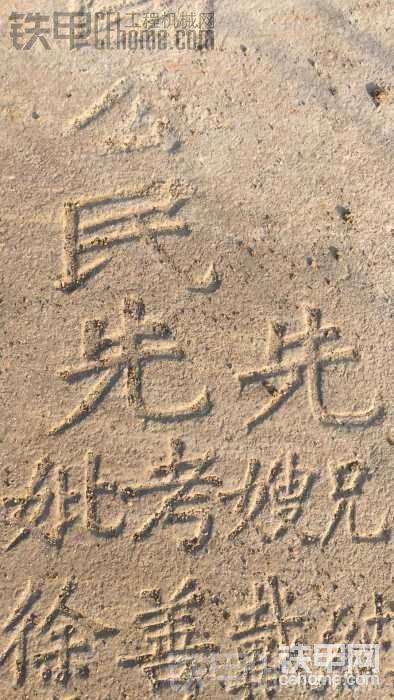 铁甲工程机械网
Cehome.com
公
民
先 先
妣 考 嫂 兄
徐 善
铁甲网
bbs.cehome.com